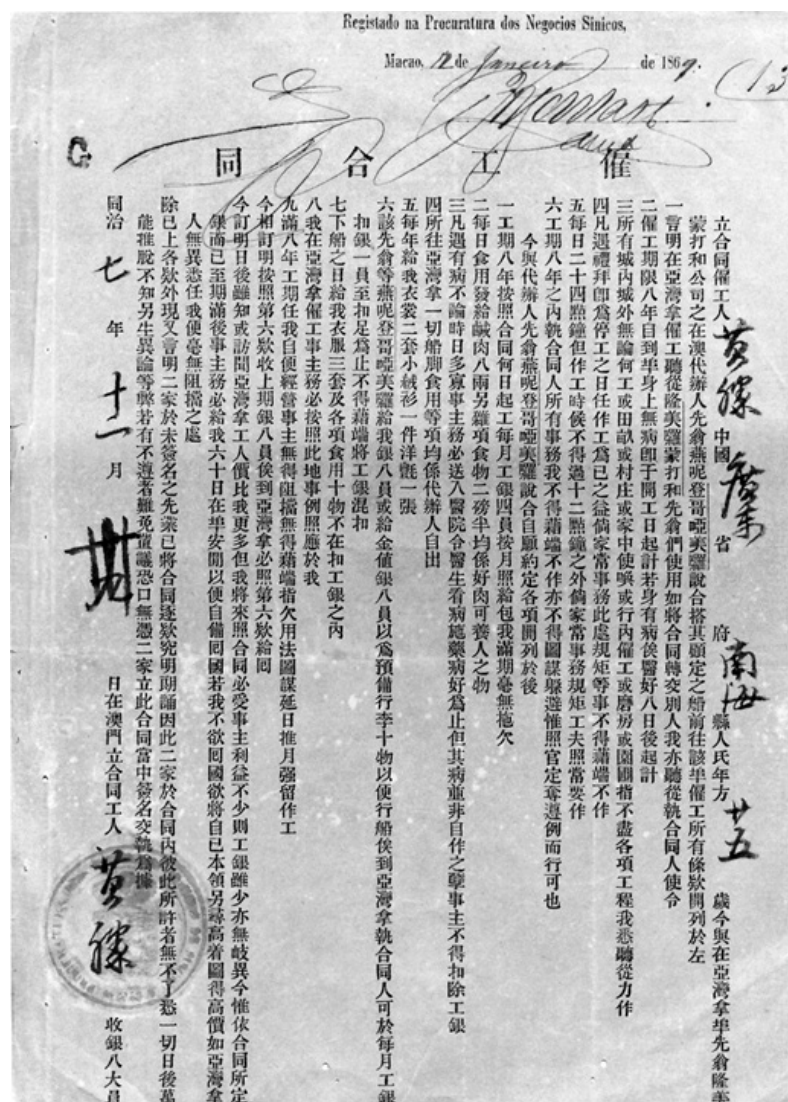 Registado na Procuratura dos Negocios Sinicos,
Macao, 12 de Janeiro de 1869.
G
催工合同
立合同催工人 黄滕 中國 廣東 省 府 南海 縣人氏年方 廿五 歲今與在亞灣拿埠先翁隆美
蒙打和公司之在澳代辦人先翁燕呢登哥啞美𠸄說合搭其顧定之船前往該埠催工所有條欵開列於左
一言明在亞灣拿催工聽從隆美𠸄蒙打和先翁們使用如將合同轉交別人我亦聽從執合同人使令
二催工期限八年自到埠身上無病卽于開工日起計若身有病俟醫好八日後起計
三所有城內城外無論何工或田畝或村庄或家中使喚或行內催工或磨房或園圃指不盡各項工程我悉聽從力作
四凡遇禮拜卽爲停工之日任作工爲己之益倘家常事務此處規矩等事不得藉端不作
五每日二十四點鐘但作工時候不得過十二點鐘之外倘家常事務規矩工夫照常要作
六工期八年之內執合同人所有事務我不得藉端不作亦不得圖謀躲避惟照官定奪遵例而行可也
今與代辦人先翁燕呢登哥啞美𠸄說合自願約定各項開列於後
一工期八年按照合同何日起工每月工銀四員按月照給包我滿期毫無拖欠
二每日食用發給鹹肉八兩另雜項食物二磅半均係好肉可養人之物
三凡遇有病不論時日多寡事主務必送入醫院令醫生看病施藥病好爲止但其病並非自作之孽事主不得扣除工銀
四所往亞灣拿一切船脚食用等項均係代辦人自出
五每年給我衣裳二套小絨衫一件洋氈一張
六該先翁等燕呢登哥啞美𠸄給我銀八員或給金值銀八員以爲預備行李什物以便行船俟到亞灣拿執合同人可於每月工銀
扣銀一員至扣足爲止不得藉端將工銀混扣
七下船之日給我衣服三套及各項食用什物不在扣工銀之內
八我在亞灣拿催工事主務必按照此地事例照應於我
九滿八年工期任我自便經營事主無得阻擋無得藉端指欠用法圖謀延日推月强留作工
今相訂明按照第六欵收上期銀八員俟到亞灣拿必照第六欵給囘
今訂明日後雖知或訪聞亞灣拿工人價比我更多但我將來照合同必受事主利益不少則工銀雖少亦無岐異今惟依合同所定
銀而已至期滿後事主務必給我六十日在埠安閒以便自備囘國若我不欲囘國欲將自己本領另尋高着圖得高價如亞灣拿
人無異悉任我便毫無阻擋之處
除已上各欵外現又言明二家於未簽名之先業已將合同逐欵究明朗誦因此二家於合同內彼此所許者無不了悉一切日後萬
能推脫不知另生異論等弊若有不遵者難免置議恐口無憑二家立此合同當中簽名交執爲據
同治 七 年 十一 月 日在澳門立合同工人 黄滕 收銀八大員